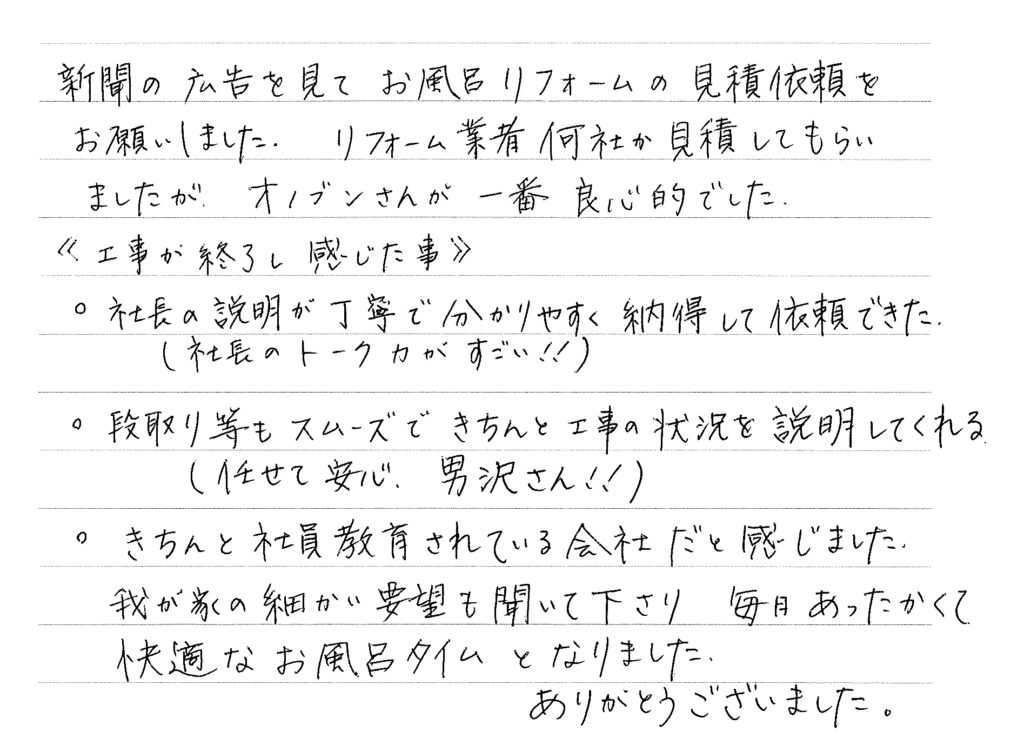 新聞の広告を見てお風呂リフォームの見積依頼を
お願いしました. リフォーム業者何社か見積してもらい
ましたが. オノブンさんが一番良心的でした.
《工事が終了し感じた事》
○ 社長の説明が丁寧で分かりやすく納得して依頼できた.
(社長のトーク力がすごい!!)
○ 段取り等もスムーズできちんと工事の状況を説明してくれる
(任せて安心. 男沢さん!!)
○ きちんと社員教育されている会社だと感じました.
我が家の細かい要望も聞いて下さり 毎日あったかくて
快適なお風呂タイムとなりました.
ありがとうございました。